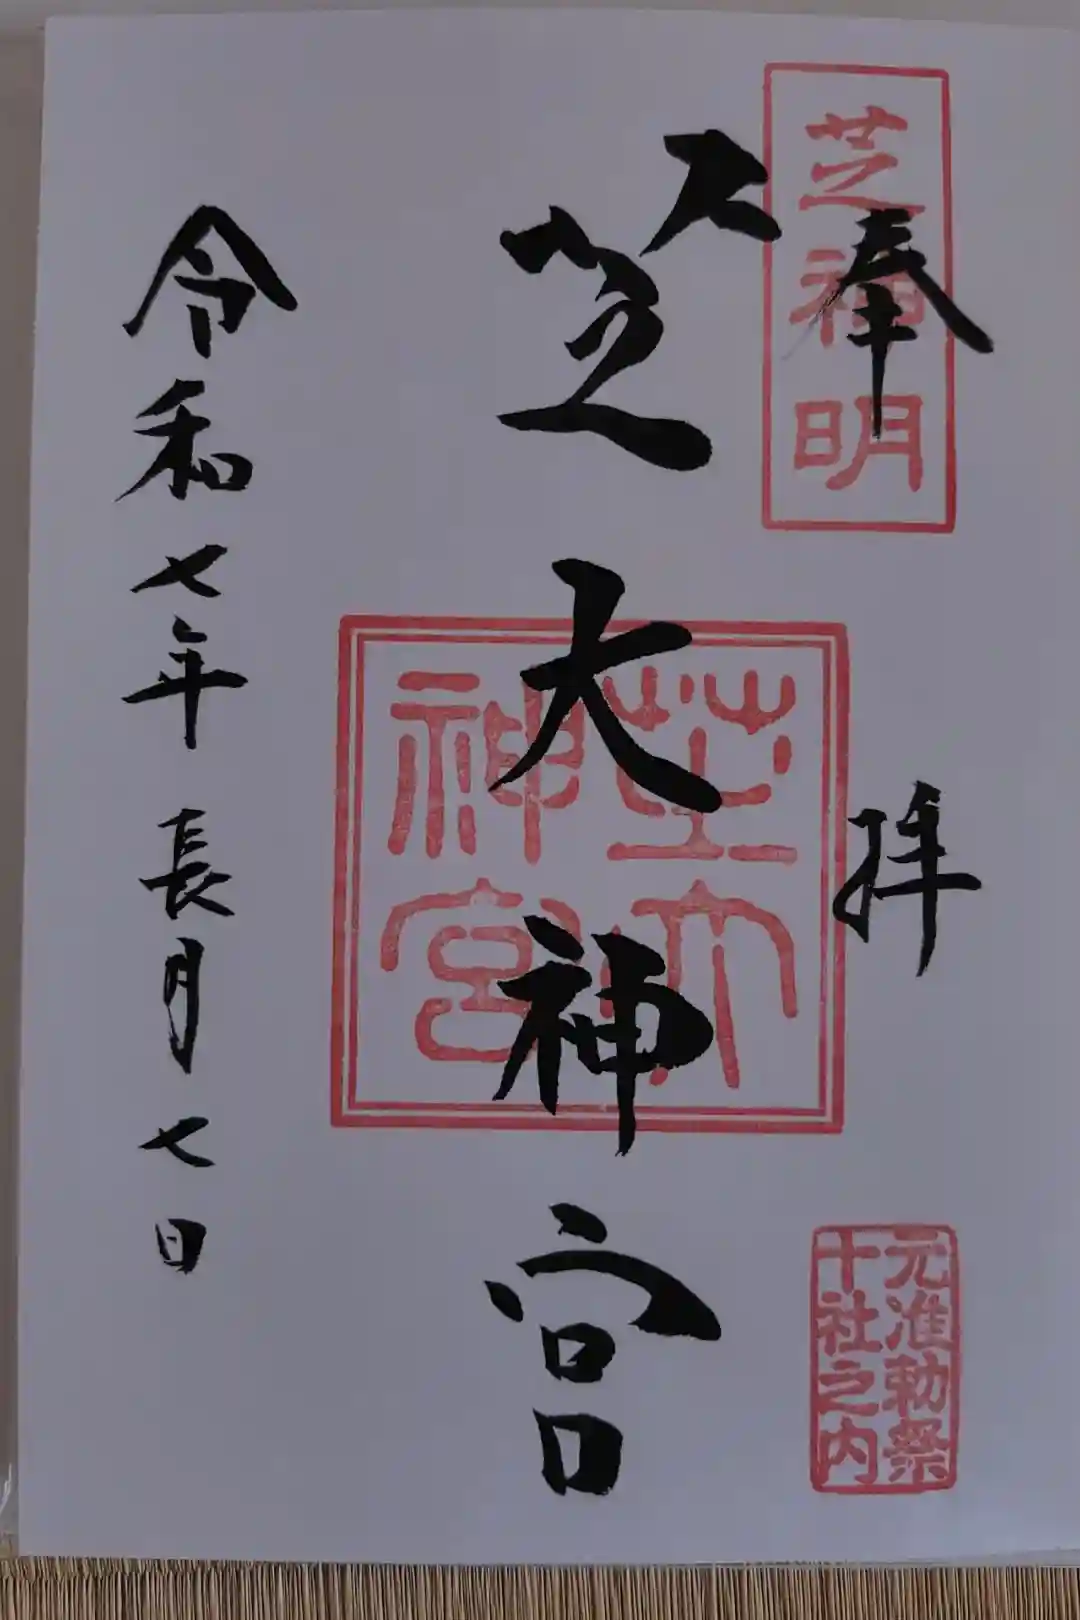 奉拝
芝神明
元准勅祭
十社之内
芝大神宮
芝大
神宮
令和七年長月七日